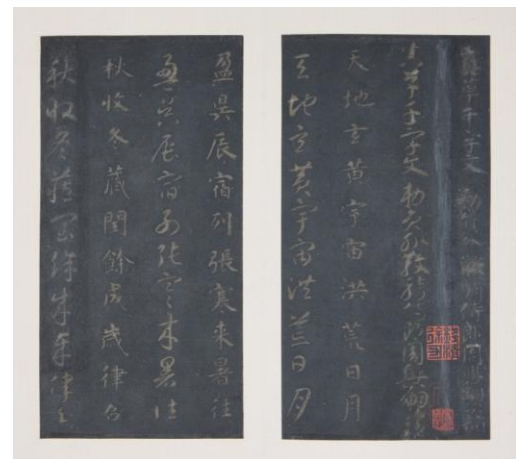 真草千字文 勅員外散騎侍郎周興嗣
真草千字文勅員外散騎侍郎周興嗣
天地玄黃宇宙洪荒日月
天地玄黃宇宙洪荒日月
盈昃辰宿列張寒来暑往
盈昃辰宿列張寒来暑往
秋收冬藏閏餘成歲律呂
秋收冬藏閏餘成歲律呂